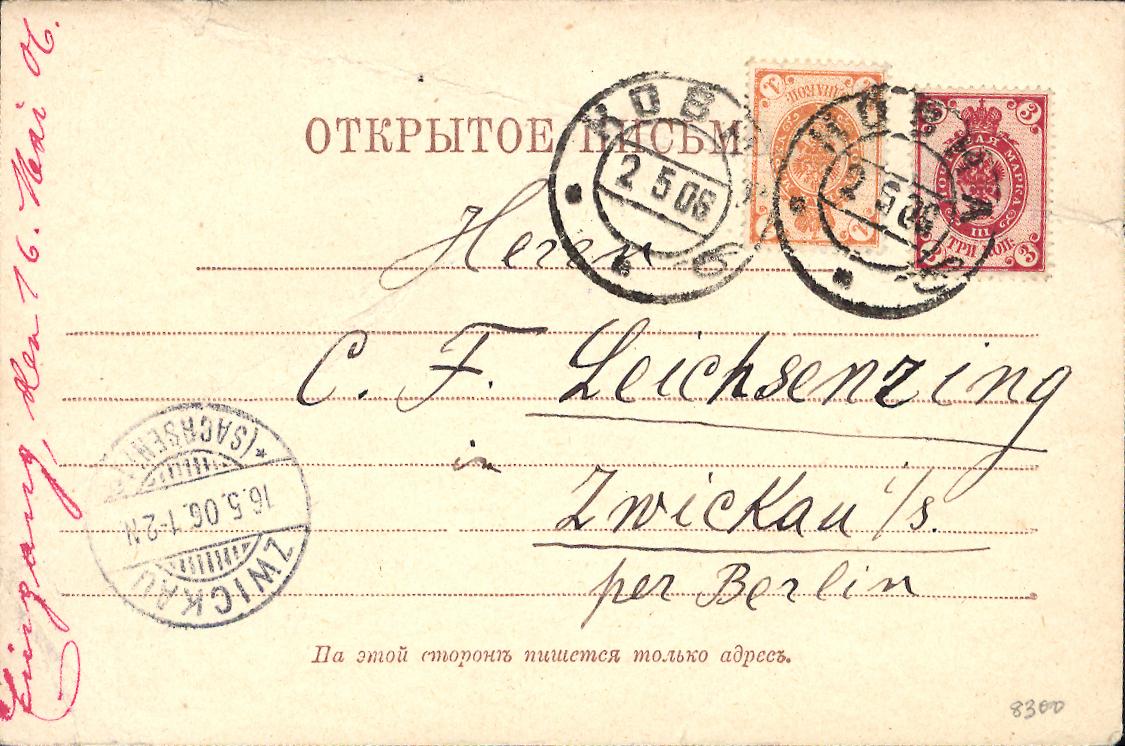 ОТКРЫТОЕ ПИСЬМО
2 5 06
2 5 06
ПОЧТОВАЯ МАРКА
III
ТРИ КОП.
3 3
3 3
Herrn
C. F. Leichsenzing
in
Zwickau i/s.
per Berlin
ZWICKAU
(SACHSEN)
16.5.06.1-2N
На этой сторонѣ пишется только адресъ.
Eingang, den 16. Mai 06.
8300